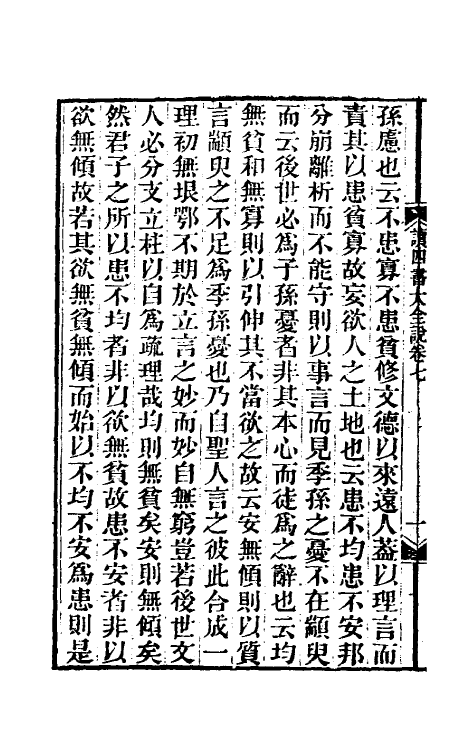 讀四書大全說卷七
孫慮也云不患寡不患貧修文德以來遠人葢以理言而
責其以患貧寡故妄欲人之土地也云患不均患不安邦
分崩離析而不能守則以事言而見季孫之憂不在顓臾
而云後世必爲子孫憂者非其本心而徒爲之辭也云均
無貧和無寡則以引伸其不當欲之故云安無傾則以質
言顓臾之不足爲季孫憂也乃自聖人言之彼此合成一
理初無垠鄂不期於立言之妙而妙自無窮豈若後世文
人必分支立柱以自爲疏理哉均則無貧矣安則無傾矣
然君子之所以患不均者非以欲無貧故患不安者非以
欲無傾故若其欲無貧無傾而始以不均不安爲患則是